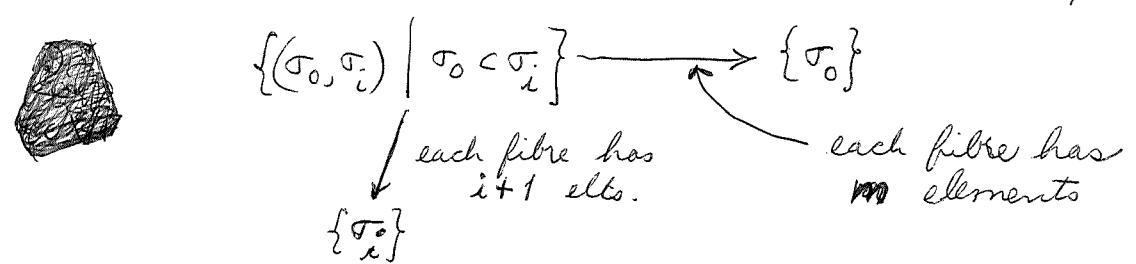 {(σ₀, σᵢ) | σ₀ ⊂ σᵢ} ⟶ {σ₀}
each fibre has
i+1 elts.
each fibre has
m elements
{σᵢ}